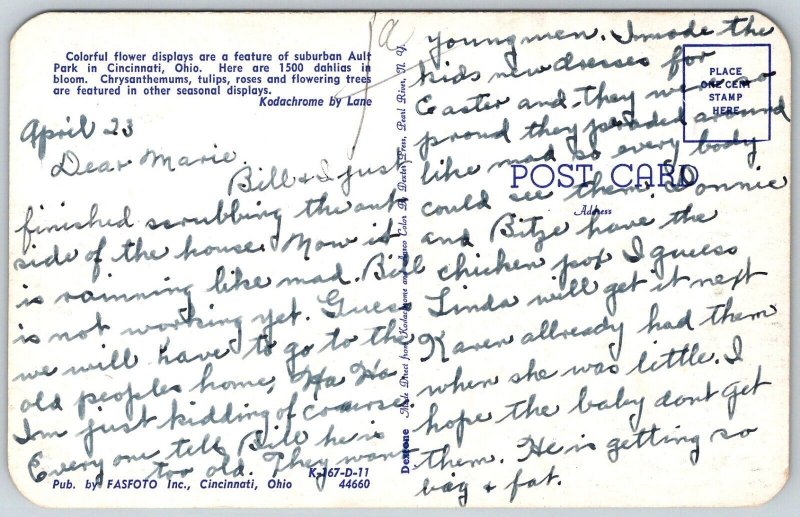 Colorful flower displays are a feature of suburban Ault
Park in Cincinnati, Ohio. Here are 1500 dahlias in
bloom. Chrysanthemums, tulips, roses and flowering trees
are featured in other seasonal displays.
Kodachrome by Lane
April 23
Dear Marie,
Bill & I just
finished scrubbing the out
side of the house. Now it
is rainning like mad. Bill
is not working yet. Guess
we will have to go to the
old peoples home, Ha Ha
Im just kidding of course
Every one tells Bill he is
too old. They want
K-167-D-11
Pub. by FASFOTO Inc., Cincinnati, Ohio 44660
Dextone Made Direct from Kodachrome and Ansco Color By Dexter Press, Pearl River, N. Y.
young men. I made the
kids new dresses for
Easter and they were so
proud they paraded around
like mad so every body
could see them. Donnie
and Bitze have the
chicken pox I guess
Linda will get it next
Karen allready had them
when she was little. I
hope the baby dont get
them. He is getting so
big & fat.
PLACE
ONE CENT
STAMP
HERE
POST CARD
Address